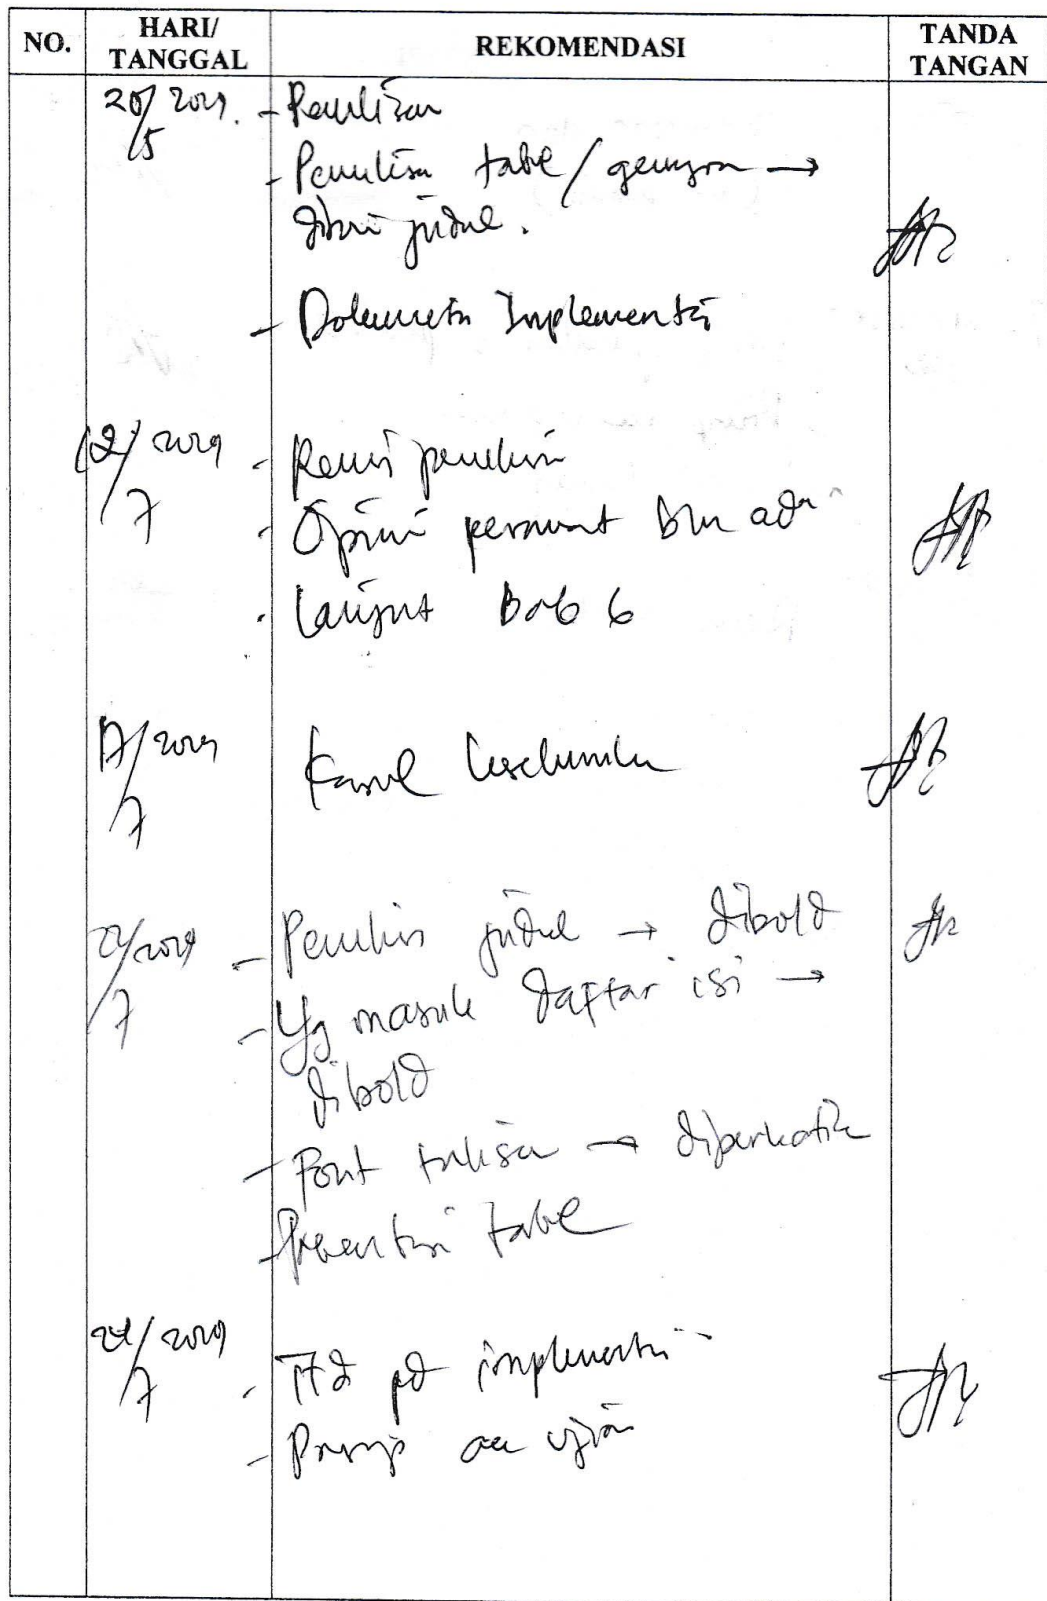 NO. HARI/ TANGGAL REKOMENDASI TANDA TANGAN
20/5 2019. - Penulisan
- Penulisan tabel /
diberi judul.
- Dokumentasi Implementasi
12/7 2019 - Revisi penulisan
- Opini perawat blm ada
- Lanjut Bab 6
17/7 2019
/7 2019 - Penulisan judul → dibold
- Yg masuk daftar isi →
dibold
- Font tulisan → diperhatikan
- tabel
/7 2019 - TTD pd implementasi
- Prinsip acc ujian